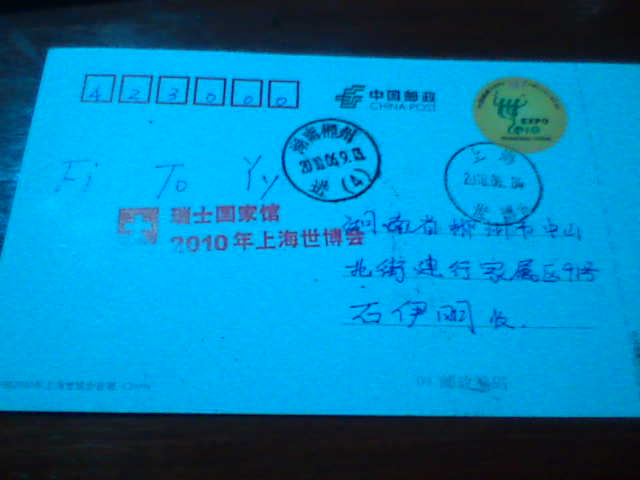 423000
中国邮政
CHINA POST
EXPO
2010
湖南郴州
2010.06.9.13
(4)
上海
2010.06.04
Fi To Yy
瑞士国家馆
2010年上海世博会
湖南省郴州市中山
北街建行家属区91号
石伊丽 收.